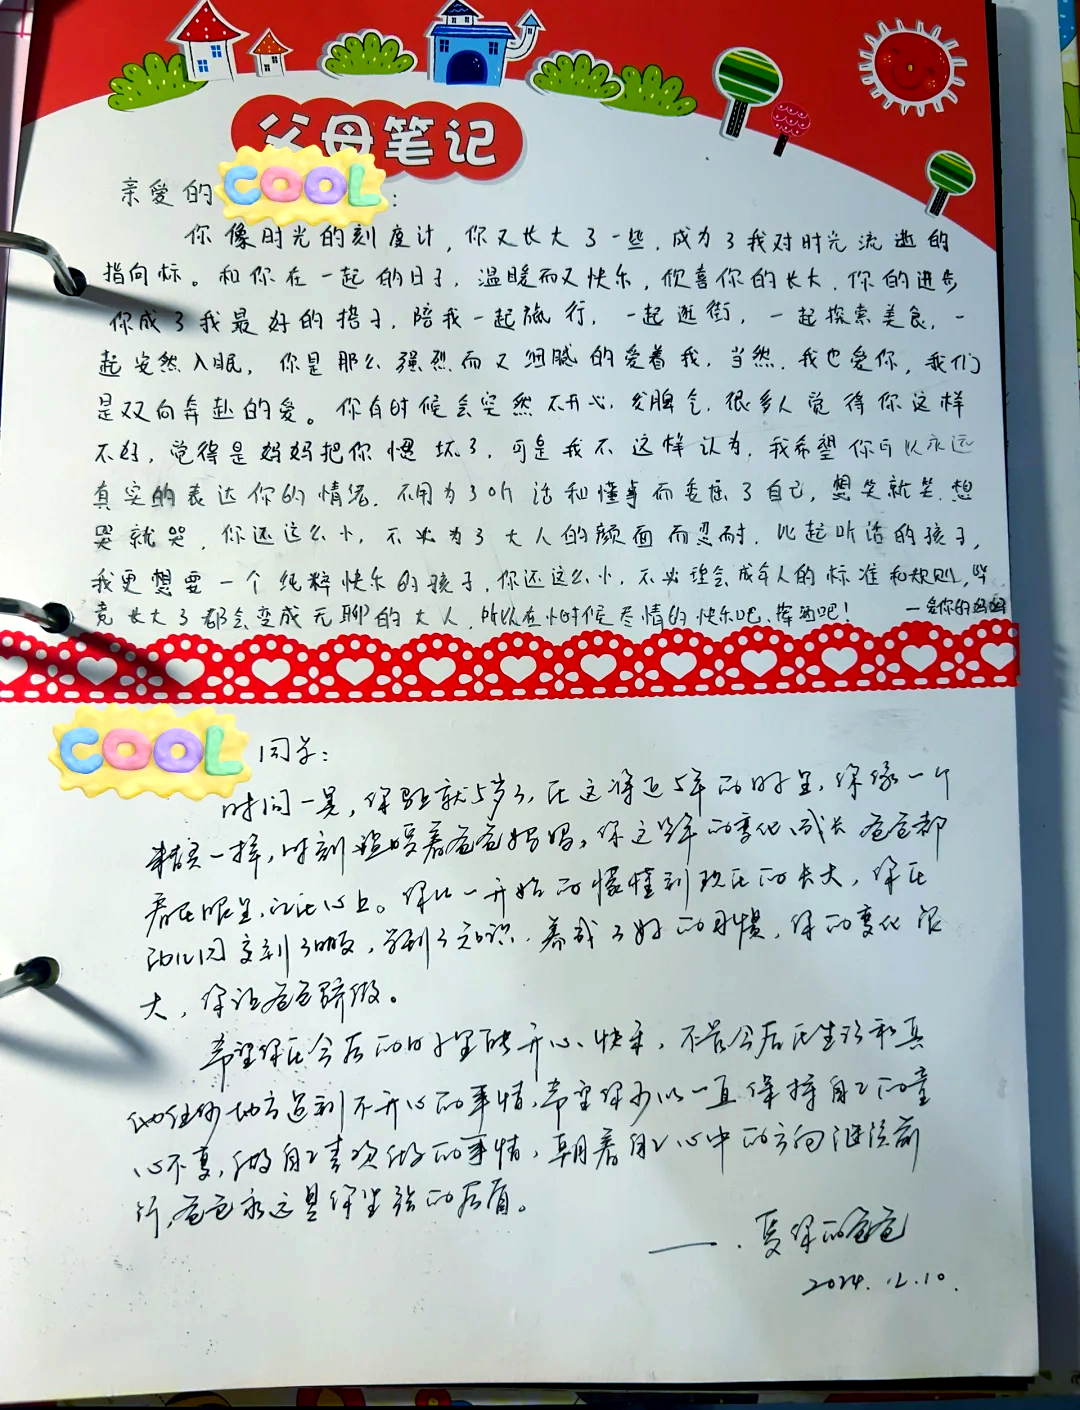 父母笔记
亲爱的COOL:
你像时光的刻度计，你又长大了一些，成为了我对时光流逝的
指向标。和你在一起的日子，温暖而又快乐，欣喜你的长大，你的进步
你成了我最好的搭子，陪我一起旅行，一起逛街，一起探索美食，一
起安然入眠，你是那么强烈而又细腻的爱着我，当然，我也爱你，我们
是双向奔赴的爱。你有时候会突然不开心，发脾气，很多人觉得你这样
不好，觉得是妈妈把你惯坏了，可是我不这样认为，我希望你可以永远
真实的表达你的情绪，不用为了听话和懂事而委屈了自己，想笑就笑，想
哭就哭，你还这么小，不必为了大人的颜面而忍耐，比起听话的孩子，
我更想要一个纯粹快乐的孩子，你还这么小，不必理会成年人的标准和规则，毕
竟长大了都会变成无聊的大人，所以在小时候尽情的快乐吧、挥洒吧！ —爱你的妈妈
COOL同学：
时间一晃，你马上就5岁了，在这将近5年的时光里，你像一个
一样，时刻温暖着爸爸妈妈，你这些年的变化、成长爸爸都
看在眼里，记在心上。你从一开始的懵懂到现在的长大，你在
幼儿园交到了朋友，学到了知识，养成了好的习惯，你的变化很
大，你让爸爸骄傲。
希望你在今后的日子里能开心、快乐，不管今后在生活和其
他任何地方遇到不开心的事情，希望你可以一直保持自己的童
心不变，做自己喜欢做的事情，朝着自己心中的方向继续前
行，爸爸永远是你坚强的后盾。
——. 爱你的爸爸
2024.12.10.